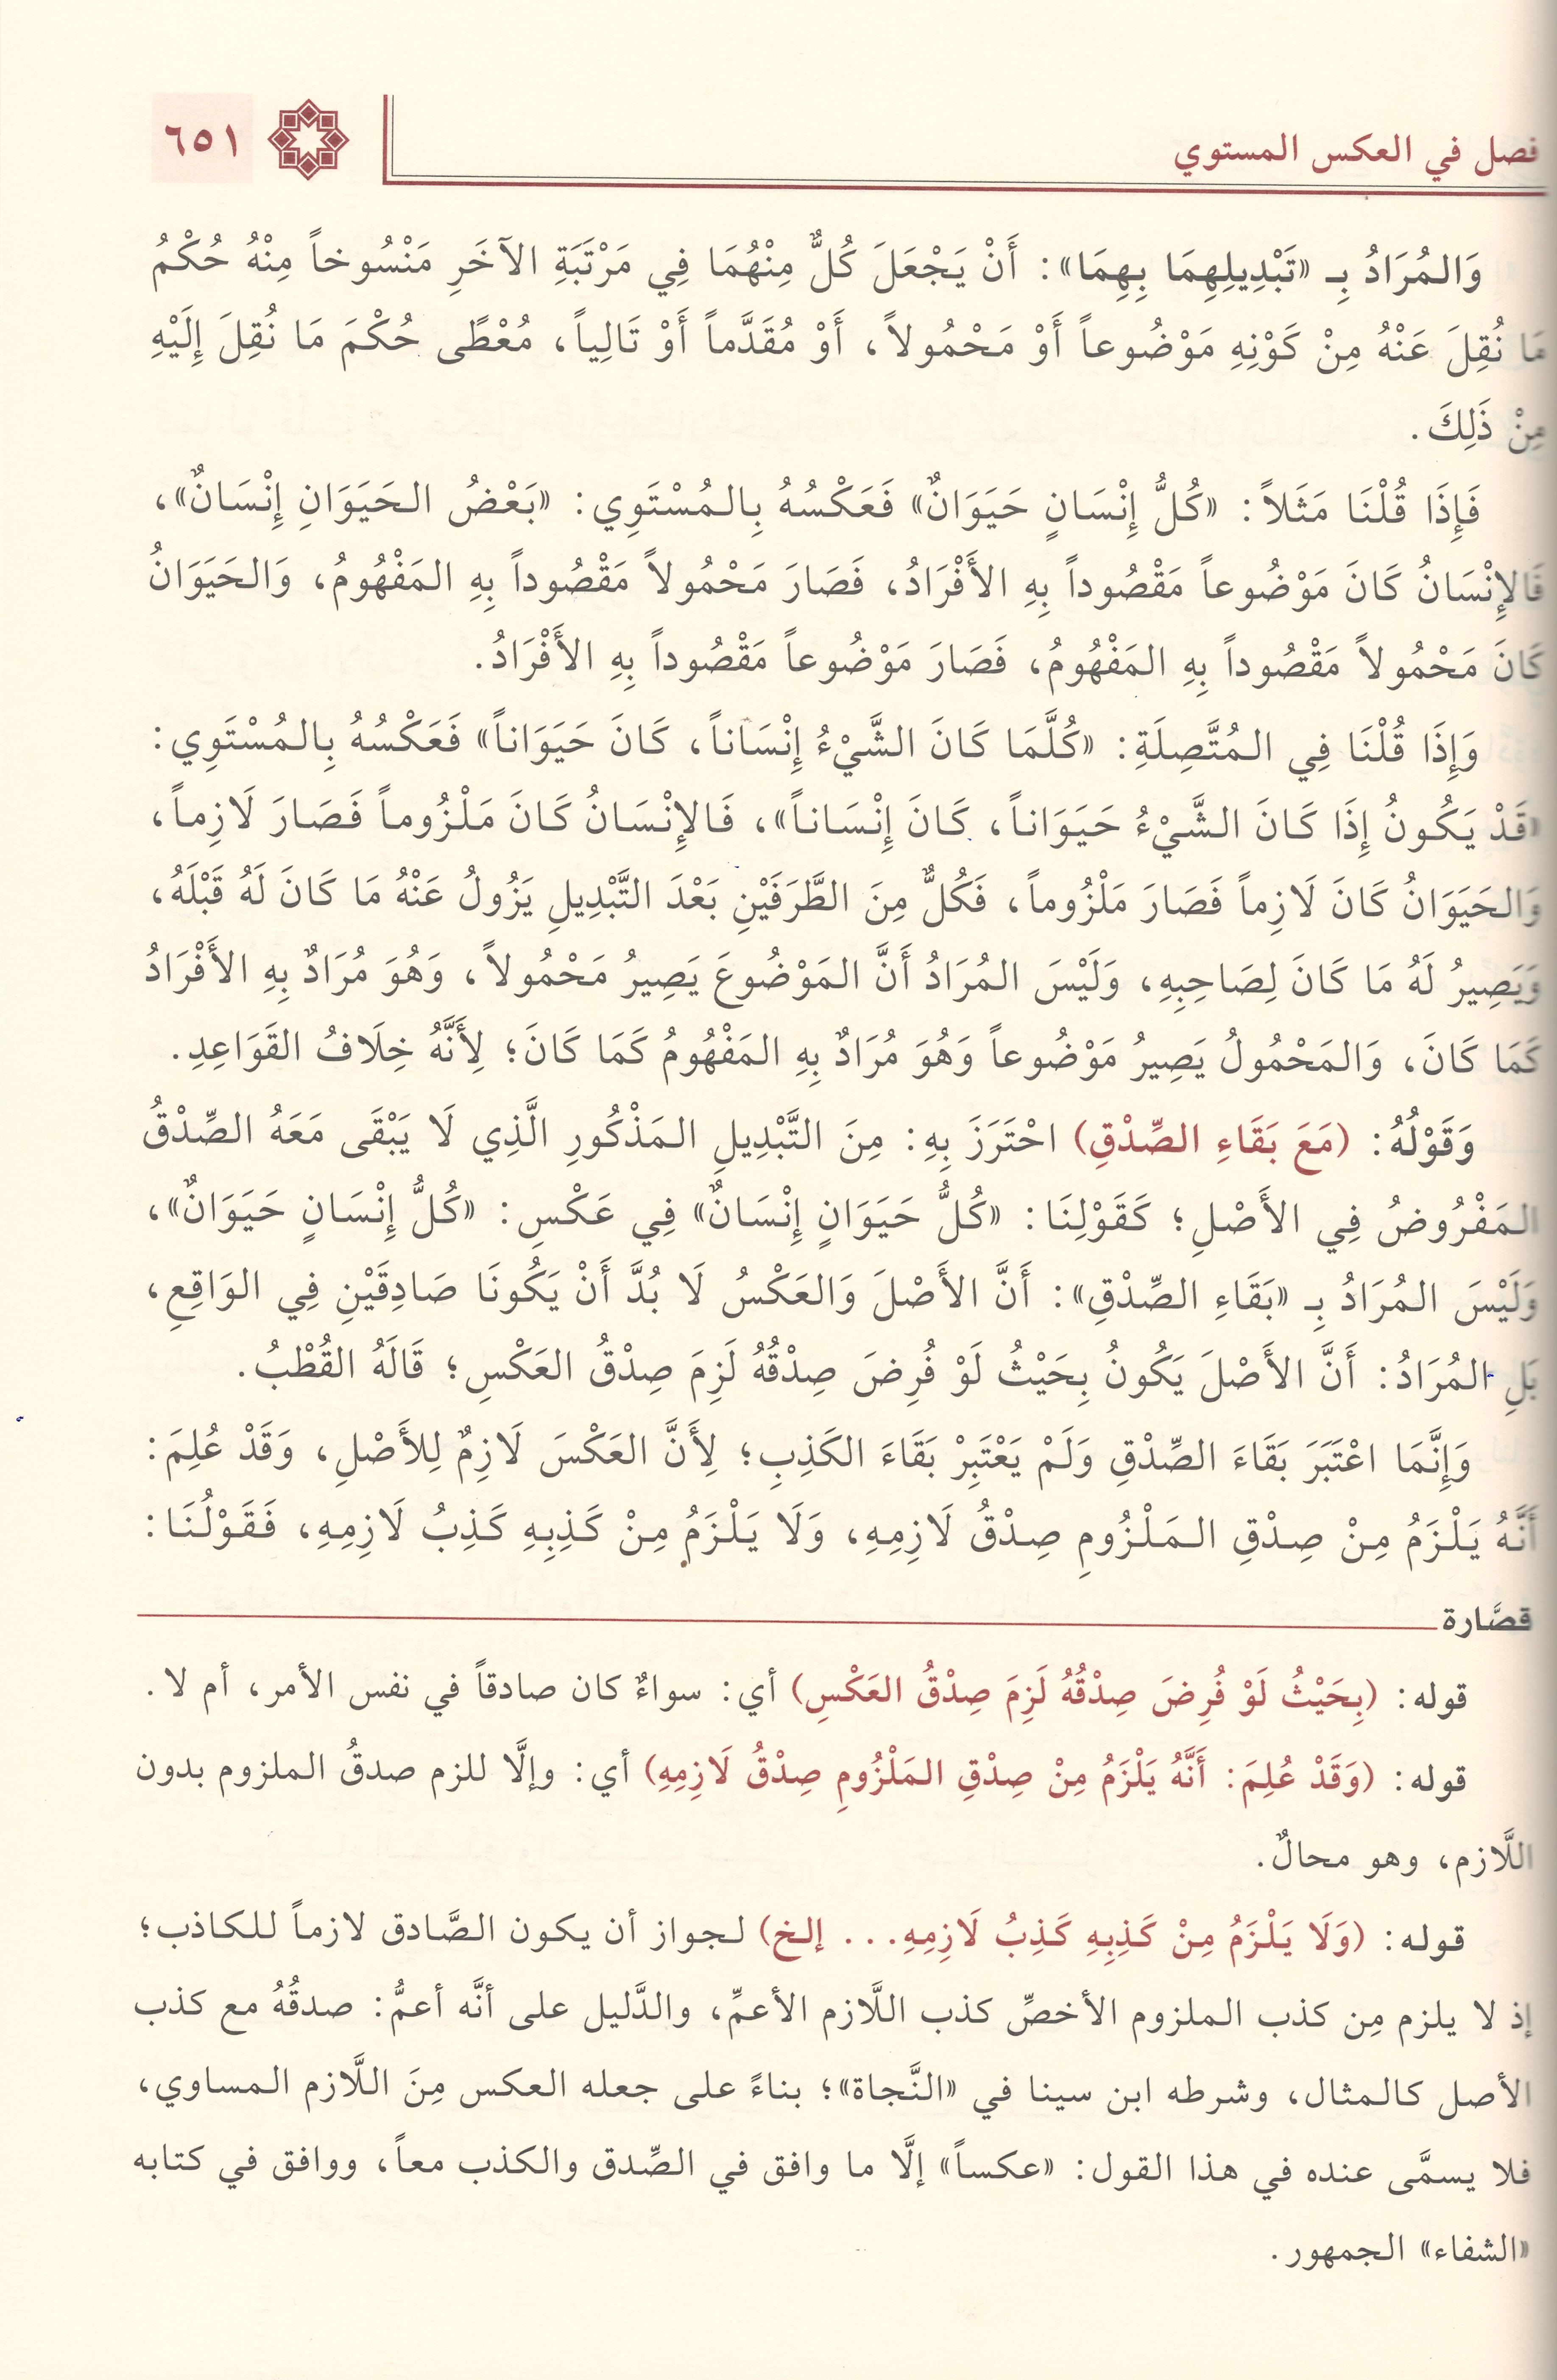 فصل في العكس المستوي
٦٥١
وَالمُرَادُ بِـ «تَبْدِيلِهِمَا بِهِمَا»: أَنْ يَجْعَلَ كُلٌّ مِنْهُمَا فِي مَرْتَبَةِ الآخَرِ مَنْسُوخاً مِنْهُ حُكْمُ
مَا نُقِلَ عَنْهُ مِنْ كَوْنِهِ مَوْضُوعاً أَوْ مَحْمُولاً، أَوْ مُقَدَّماً أَوْ تَالِياً، مُعْطًى حُكْمَ مَا نُقِلَ إِلَيْهِ
مِنْ ذَلِكَ.
فَإِذَا قُلْنَا مَثَلاً: «كُلُّ إِنْسَانٍ حَيَوَانٌ» فَعَكْسُهُ بِالمُسْتَوِي: «بَعْضُ الحَيَوَانِ إِنْسَانٌ»،
فَالإِنْسَانُ كَانَ مَوْضُوعاً مَقْصُوداً بِهِ الأَفْرَادُ، فَصَارَ مَحْمُولاً مَقْصُوداً بِهِ المَفْهُومُ، وَالحَيَوَانُ
كَانَ مَحْمُولاً مَقْصُوداً بِهِ المَفْهُومُ، فَصَارَ مَوْضُوعاً مَقْصُوداً بِهِ الأَفْرَادُ.
وَإِذَا قُلْنَا فِي المُتَّصِلَةِ: «كُلَّمَا كَانَ الشَّيْءُ إِنْسَاناً، كَانَ حَيَوَاناً» فَعَكْسُهُ بِالمُسْتَوِي:
«قَدْ يَكُونُ إِذَا كَانَ الشَّيْءُ حَيَوَاناً، كَانَ إِنْسَاناً»، فَالإِنْسَانُ كَانَ مَلْزُوماً فَصَارَ لَازِماً،
وَالحَيَوَانُ كَانَ لَازِماً فَصَارَ مَلْزُوماً، فَكُلٌّ مِنَ الطَّرَفَيْنِ بَعْدَ التَّبْدِيلِ يَزُولُ عَنْهُ مَا كَانَ لَهُ قَبْلَهُ،
وَيَصِيرُ لَهُ مَا كَانَ لِصَاحِبِهِ، وَلَيْسَ المُرَادُ أَنَّ المَوْضُوعَ يَصِيرُ مَحْمُولاً، وَهُوَ مُرَادٌ بِهِ الأَفْرَادُ
كَمَا كَانَ، وَالمَحْمُولُ يَصِيرُ مَوْضُوعاً وَهُوَ مُرَادٌ بِهِ المَفْهُومُ كَمَا كَانَ؛ لِأَنَّهُ خِلَافُ القَوَاعِدِ.
وَقَوْلُهُ: (مَعَ بَقَاءِ الصِّدْقِ) احْتَرَزَ بِهِ: مِنَ التَّبْدِيلِ المَذْكُورِ الَّذِي لَا يَبْقَى مَعَهُ الصِّدْقُ
المَفْرُوضُ فِي الأَصْلِ؛ كَقَوْلِنَا: «كُلُّ حَيَوَانٍ إِنْسَانٌ» فِي عَكْسِ: «كُلُّ إِنْسَانٍ حَيَوَانٌ»،
وَلَيْسَ المُرَادُ بِـ «بَقَاءِ الصِّدْقِ»: أَنَّ الأَصْلَ وَالعَكْسُ لَا بُدَّ أَنْ يَكُونَا صَادِقَيْنِ فِي الوَاقِعِ،
بَلِ المُرَادُ: أَنَّ الأَصْلَ يَكُونُ بِحَيْثُ لَوْ فُرِضَ صِدْقُهُ لَزِمَ صِدْقُ العَكْسِ؛ قَالَهُ القُطْبُ.
وَإِنَّمَا اعْتَبَرَ بَقَاءَ الصِّدْقِ وَلَمْ يَعْتَبِرْ بَقَاءَ الكَذِبِ؛ لِأَنَّ العَكْسَ لَازِمٌ لِلأَصْلِ، وَقَدْ عُلِمَ:
أَنَّهُ يَلْزَمُ مِنْ صِدْقِ المَلْزُومِ صِدْقُ لَازِمِهِ، وَلَا يَلْزَمُ مِنْ كَذِبِهِ كَذِبُ لَازِمِهِ، فَقَوْلُنَا:
قصَّارة
قوله: (بِحَيْثُ لَوْ فُرِضَ صِدْقُهُ لَزِمَ صِدْقُ العَكْسِ) أي: سواءٌ كان صادقاً في نفس الأمر، أم لا.
قوله: (وَقَدْ عُلِمَ: أَنَّهُ يَلْزَمُ مِنْ صِدْقِ المَلْزُومِ صِدْقُ لَازِمِهِ) أي: وإلَّا للزم صدقُ الملزوم بدون
اللَّازم، وهو محالٌ.
قوله: (وَلَا يَلْزَمُ مِنْ كَذِبِهِ كَذِبُ لَازِمِهِ... إلخ) لجواز أن يكون الصَّادق لازماً للكاذب؛
إذ لا يلزم مِن كذب الملزوم الأخصِّ كذب اللَّازم الأعمِّ، والدَّليل على أنَّه أعمُّ: صدقُهُ مع كذب
الأصل كالمثال، وشرطه ابن سينا في «النَّجاة»؛ بناءً على جعله العكس مِنَ اللَّازم المساوي،
فلا يسمَّى عنده في هذا القول: «عكساً» إلَّا ما وافق في الصِّدق والكذب معاً، ووافق في كتابه
«الشفاء» الجمهور.